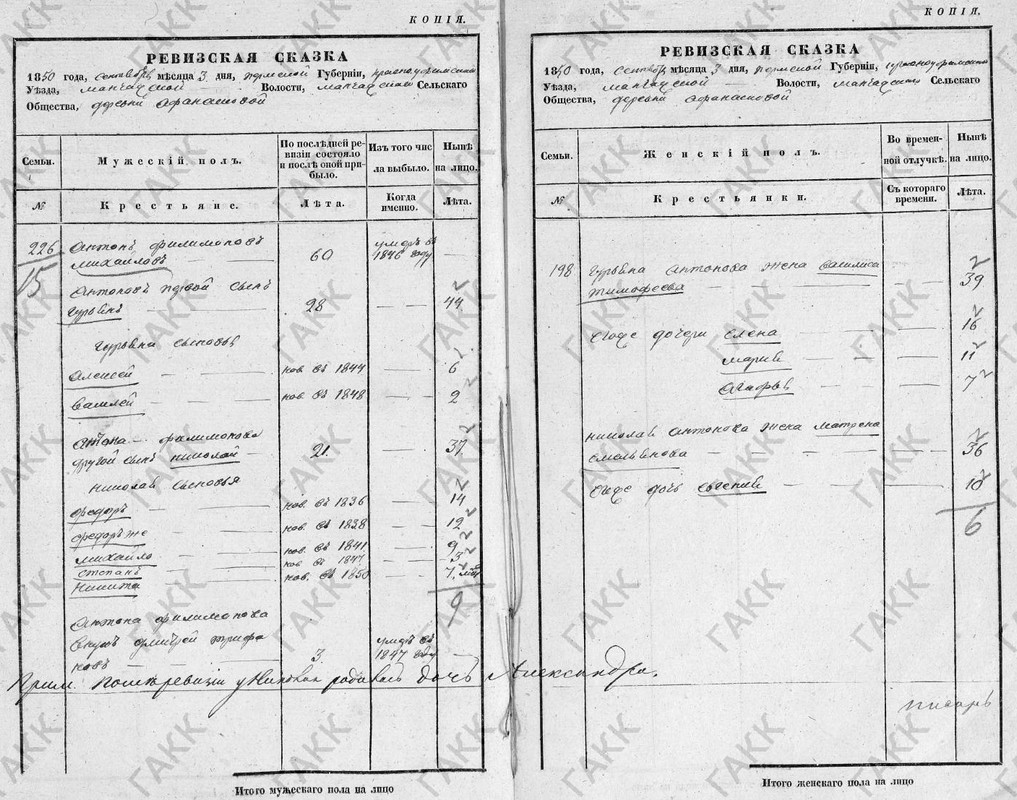 КОПІЯ.
РЕВИЗСКАЯ СКАЗКА
1850 года, сентября мѣсяца 3 дня, пермской Губерніи, красноуфимскаго
Уѣзда, манчажской Волости, манчажскаго Сельскаго
Общества, деревни Афанасковой
Семьи.
Мужескій полъ.
По послѣдней ре-
визіи состояло
и послѣ оной при-
было.
Изъ того чис
ла выбыло.
Нынѣ
на лицо.
№
Крестьяне.
Лѣта.
Когда
именно.
Лѣта.
226 Антонъ филимоновъ
михайловъ 60 умръ въ 1846 году
15
Антоновъ первой сынъ
Гурьянъ 28 44
Гурьяна сыновья
алексей нов. въ 1844 6
василей нов. въ 1848 2
антона филимонова
другой сынъ николай 21 37
николая сыновья
федоръ нов. въ 1836 14
федоръ же нов. въ 1838 12
михайло нов. въ 1841 9
степанъ нов. въ 1847 3
никита нов. въ 1850
9
антона филимонова
внукъ дмитрей трифо
новъ 3 умръ въ 1847 году
Прим. После ревизии у родилась дочь Александра.
Итого мужескаго пола на лицо
КОПІЯ.
РЕВИЗСКАЯ СКАЗКА
1850 года, сентября мѣсяца 3 дня, пермской Губерніи, красноуфимскаго
Уѣзда, манчажской Волости, манчажскаго Сельскаго
Общества, деревни Афанасковой
Семьи.
Женскій полъ.
Во времен-
ной отлучкѣ.
Нынѣ
на лицо.
№
Крестьянки.
Съ котораго
времени.
Лѣта.
198 Гурьяна антонова жена василиса
тимофеева 39
Его же дочери елена 16
марья 11
агафья 7
николая антонова жена матрена
емельянова 36
Его же дочь евгения 10
6
писарь
Итого женскаго пола на лицо
ГАКК